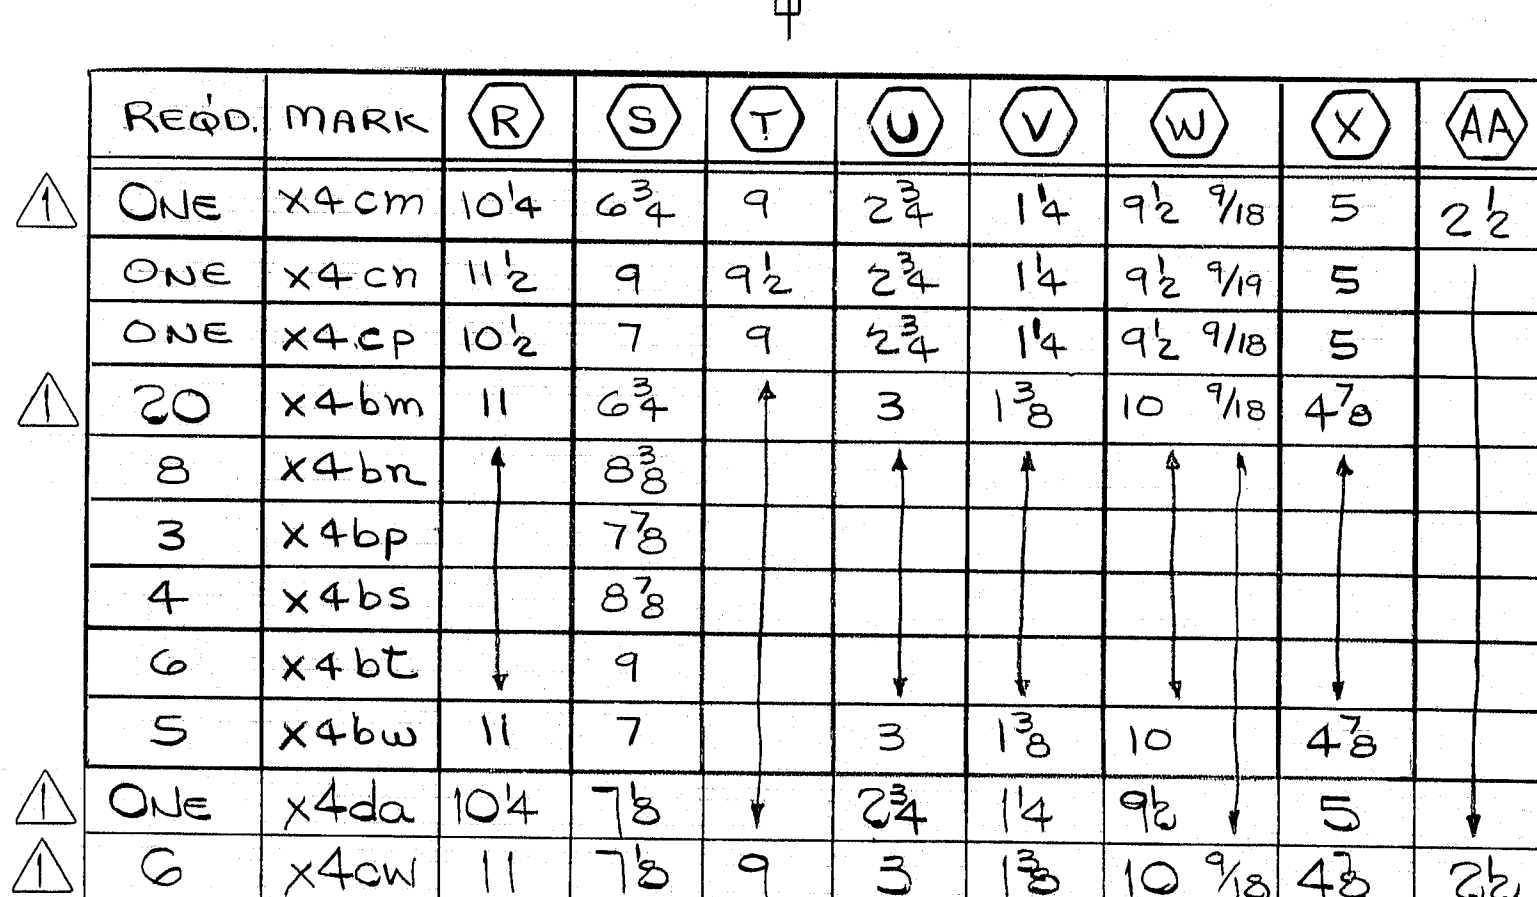 REQ'D. MARK R S T U V W X AA
1 ONE x4cm 10 1/4 6 3/4 9 2 3/4 1 1/4 9 1/2 9/18 5 2 1/2
ONE x4cn 11 1/2 9 9 1/2 2 3/4 1 1/4 9 1/2 9/19 5
ONE x4cp 10 1/2 7 9 2 3/4 1 1/4 9 1/2 9/18 5
1 20 x4bm 11 6 3/4 3 1 3/8 10 9/18 4 7/8
8 x4bn 8 3/8
3 x4bp 7 7/8
4 x4bs 8 7/8
6 x4bt 9
5 x4bw 11 7 3 1 3/8 10 4 7/8
1 ONE x4da 10 1/4 7 1/8 2 3/4 1 1/4 9 1/2 5
1 6 x4cw 11 7 1/8 9 3 1 3/8 10 9/18 4 7/8 2 1/2